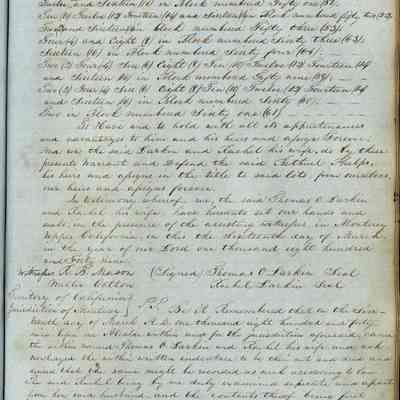 Twelve and Sixteen (16) in Block numbered Fifty one (51).
Ten (10) Twelve (12) Fourteen (14) and Sixteen (16) in Block numbered fifty two (52)
Two and Sixteen in block numbered Fifty three (53).
Four (4) and Eight (8) in Block numbered Sixty three (63).
Sixteen (16) in Block numbered Sixty four (64).
Two (2) Four (4) Six (6) Eight (8) Ten (10) Twelve (12) Fourteen (14)
and Sixteen (16) in Block numbered Fifty nine (59).
Two (2) Four (4) Six (6) Eight (8) Ten (10) Twelve (12) Fourteen (14)
and Sixteen (16) in Block numbered Sixty (60).
Two in Block numbered Sixty one (61)
To Have and to hold with all its appurtenances
and waranteys to him and his heirs and assigns Forever.
And we the said Larkin and Rachel his wife, do by these
presents Warrant and Defend the said Bethuel Phelps,
his heirs and assigns in the title to said lots from ourselves,
our heirs and assigns forever.
In testimony whereof we, the said Thomas O. Larkin
and Rachel his wife, have hereunto set our hands and
seals, in the presence of the attesting witnesses, in Monterey
Upper California, on this the day of March
in the year of our Lord one thousand eight hundred
and Forty Nine.
Witnesses R. B. Mason (Signed) Thomas O. Larkin Seal
Walter Colton Rachel Larkin Seal
Territory of California
Jurisdiction of Monterey } S.S. Be it Remembered that on the
day of March A.D. one thousand eight hundred and forty
nine before me Alcalde within and for the jurisdiction aforesaid, came
the within named Thomas O. Larkin and Rachel his wife and ack-
nowledged the within written indenture to be their act and deed and
desired that the same might be recorded as such according to law
The said Rachel being by me duly examined separate and apart
from her said husband, and the contents thereof being first